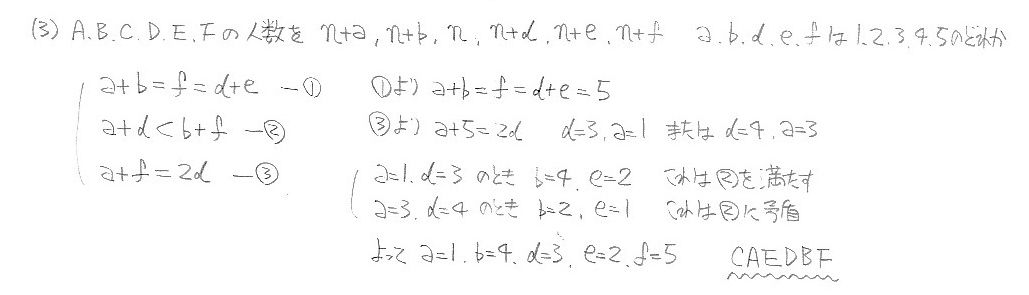 (3) A.B.C.D.E.Fの人数を n+a, n+b, n, n+d, n+e, n+f a.b.d.e.fは1.2.3.4.5のどれか
a+b=f=d+e ―① ①より a+b=f=d+e=5
a+d<b+f ―② ③より a+5=2d d=3,a=1 または d=4.a=3
a+f=2d ―③ a=1.d=3 のとき b=4.e=2 これは②を満たす
a=3.d=4 のとき b=2,e=1 これは②に矛盾
よって a=1.b=4.d=3.e=2.f=5 CAEDBF